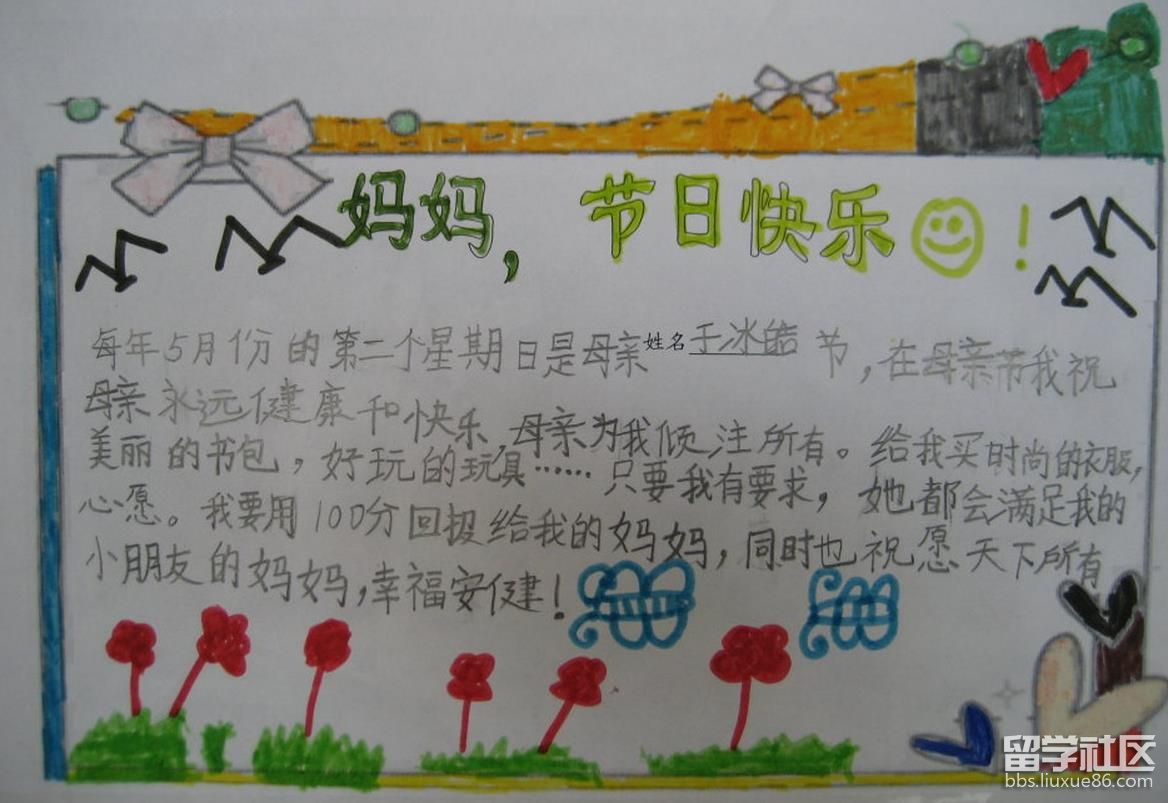 妈妈，节日快乐！
每年5月份的第二个星期日是母亲姓名于冰皓节，在母亲节我祝
母亲永远健康和快乐，母亲为我倾注所有。给我买时尚的衣服，
美丽的书包，好玩的玩具……只要我有要求，她都会满足我的
心愿。我要用100分回报给我的妈妈，同时也祝愿天下所有
小朋友的妈妈，幸福安健！
留学社区
bbs.liuxue86.com